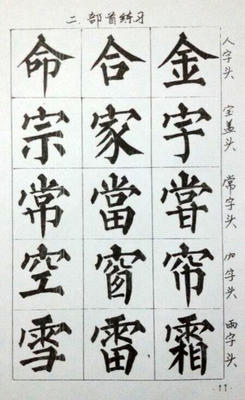 二.部首练习
人字头
金合命
宝盖头
宇家宗
常字头
當常
穴字头
帘窗空
雨字头
霜雷雪
11